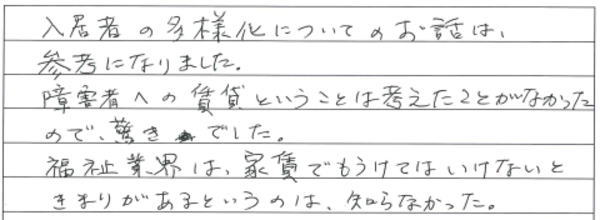 入居者の多様化についてのお話は、
参考になりました。
障害者への賃貸ということは考えたことがなかった
ので、驚きでした。
福祉業界は、家賃でもうけてはいけないと
きまりがあるというのは、知らなかった。